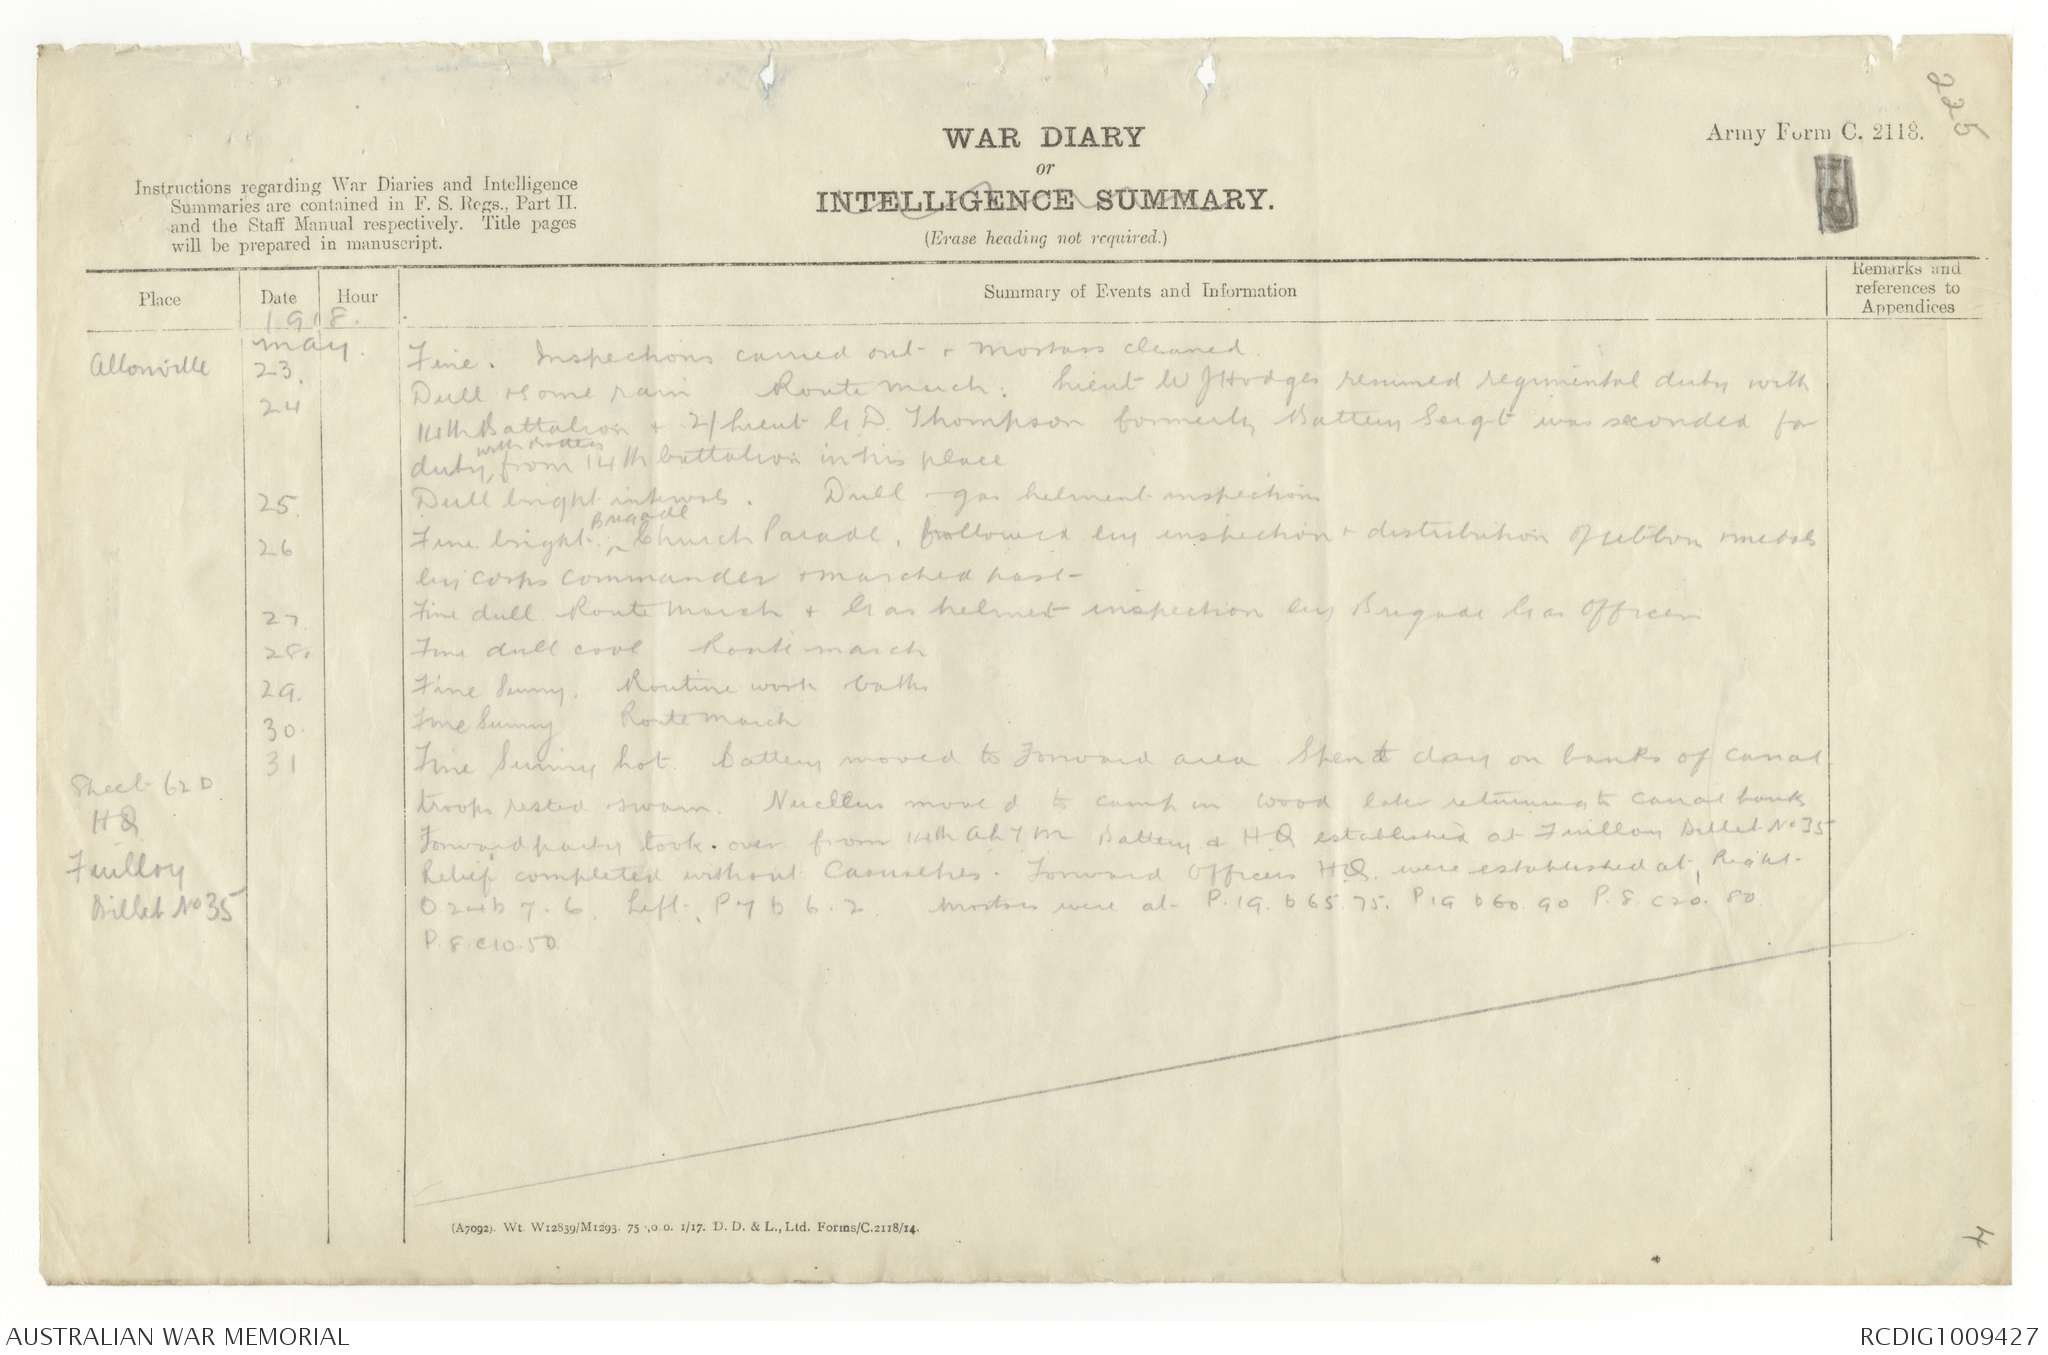 225
WAR DIARY
or
INTELLIGENCE SUMMARY.
(Erase heading not required.)
Army Form C. 2118.
Instructions regarding War Diaries and Intelligence
Summaries are contained in F. S. Regs., Part II.
and the Staff Manual respectively. Title pages
will be prepared in manuscript.
Place Date Hour Summary of Events and Information Remarks and
references to
Appendices
1918.
May.
Allonville 23. Fine. Inspections carried out & mortars cleaned.
24 Dull & some rain Route March. Lieut W J Hodges resumed regimental duty with
14th Battalion & 2/Lieut G D. Thompson formerly Battery Sergt was seconded for
duty, with Battery from 14th battalion in his place
25. Dull bright intervals. Dull - gas helment inspections
26 Fine bright. Brigade Church Parade, followed by inspection & distribution of ribbon & medals
by Corps Commander & marched past-
27. Fine dull Route March & Gas helmet inspection by Brigade Gas Officer
28. Fine dull cool Route march
29. Fine Sunny. Routine work baths
30. Fine Sunny Route March
31 Fine Sunny hot. Battery moved to Forward area Spent day on banks of canal
Sheet 62D troops rested & swam. Nucleus moved to camp in wood later returning to canal banks
HQ Forward party took over from 14th A L T M Battery & HQ established at Fuilloy Billet No 35
Fuilloy Relief completed without Casualties. Forward Officers HQ. were established at, Right-
Billet No 35 O 24 b 7.6. Left, P 7 b 6.2. Mortars were at P.19.b 65.75. P 19 b 60.90 P.8.c20.80
P.8.c10.50
(A7092). Wt. W12839/M1293. 75 ,0 0. 1/17. D. D. & L., Ltd. Forms/C.2118/14.
4
AUSTRALIAN WAR MEMORIAL
RCDIG1009427